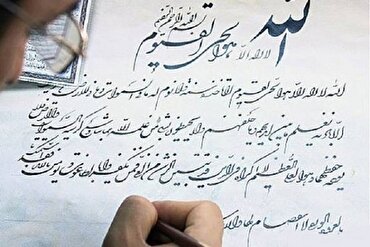 بسم الله الرحمن الرحیم
الله
لا اله الا هو الحی القیوم
الله لا اله الا هو الحی القیوم لا تاخذه سنة ولا نوم له ما فی السموات وما فی الارض من ذا الذی یشفع عنده
الا باذنه یعلم ما بین ایدیهم وما خلفهم ولا یحیطون بشیء من علمه الا بما شاء وسع کرسیه السموات والارض ولا یؤده
حفظهما وهو العلی العظیم لا اکراه فی الدین قد تبین الرشد من الغی فمن یکفر بالطاغوت ویؤمن بالله فقد استمسک
بالعروة الوثقی لا انفصام لها والله